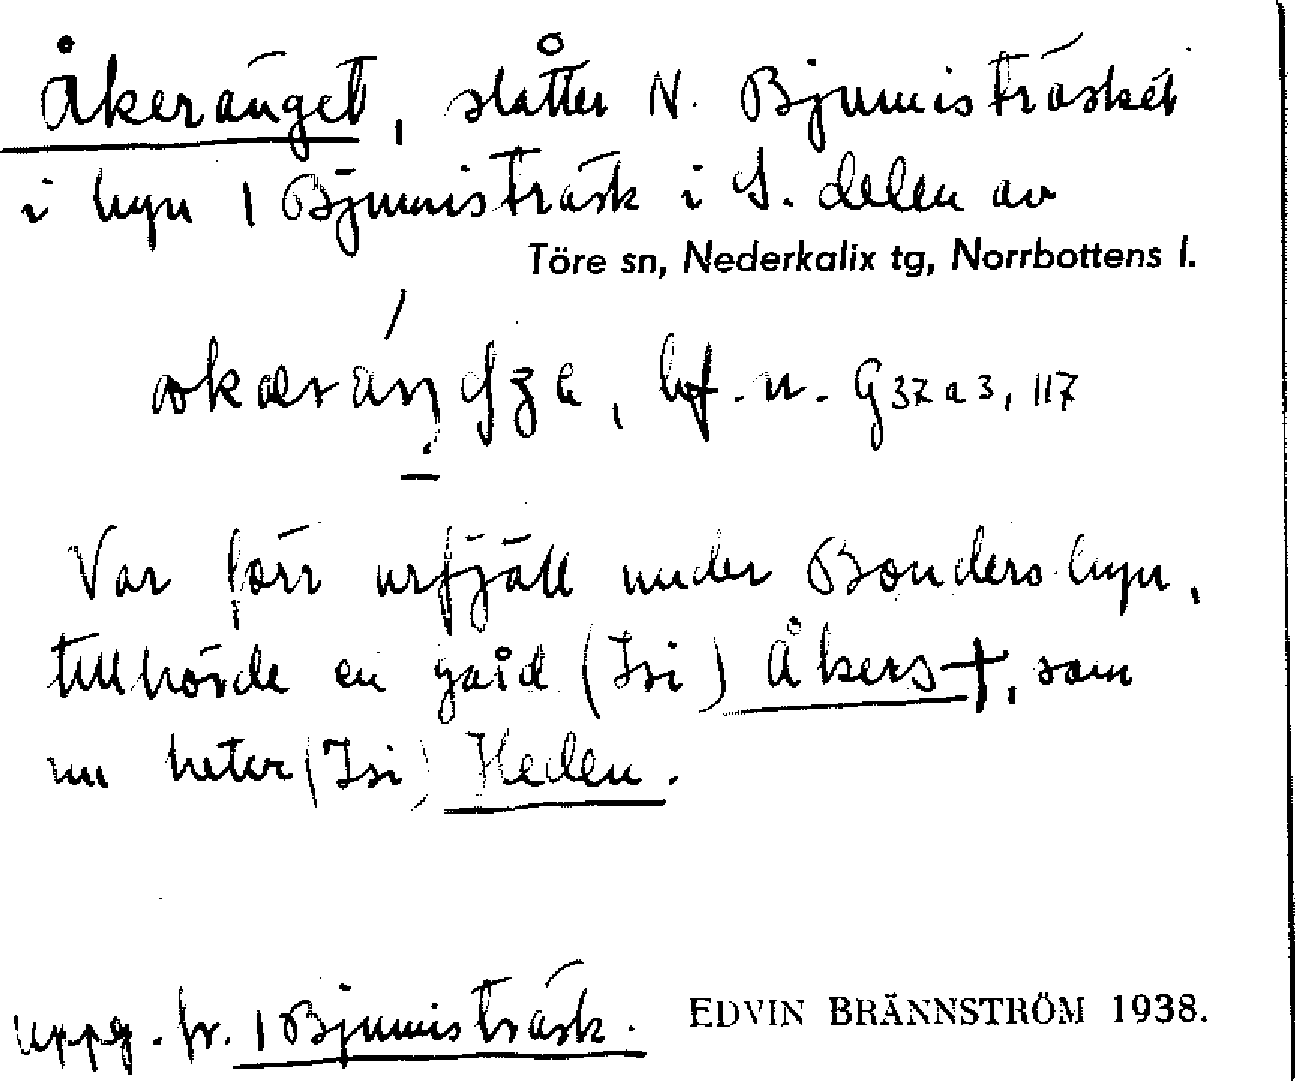 Åkeränget, slåtter N. Bjumisträsket
i byn 1 Bjumisträsk i S. delen av
Töre sn, Nederkalix tg, Norrbottens l.
bf. n. G 37 a 3, 117
Var förr urfjäll under Bondersbyn,
tillhörde en gård (Isi) Åkers †, som
nu heter (Isi) Heden.
uppg. fr. 1 Bjumisträsk. EDVIN BRÄNNSTRÖM 1938.